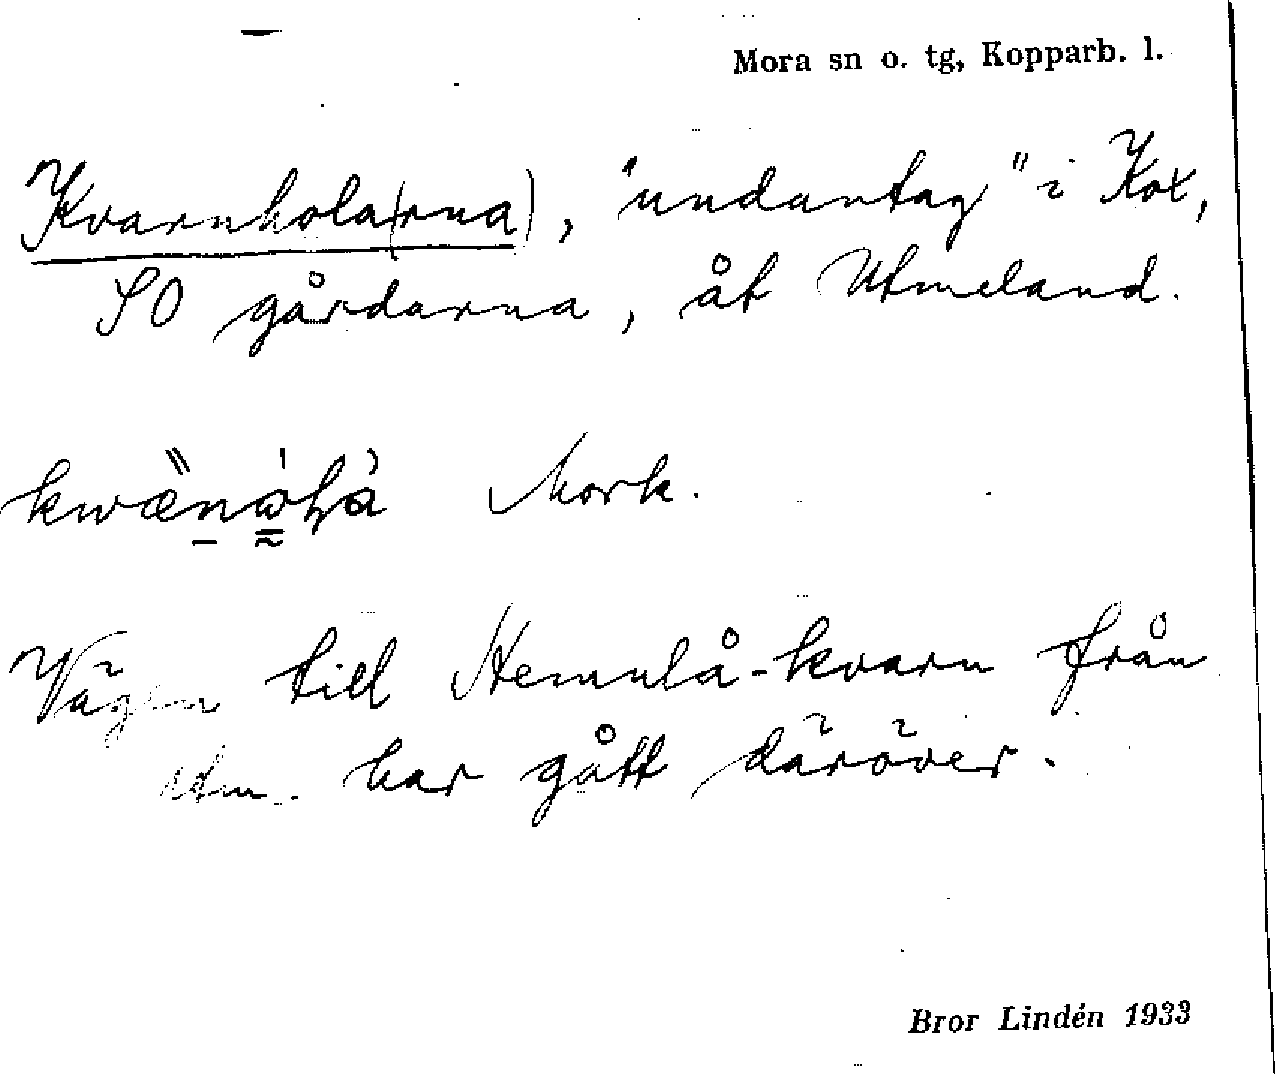 Mora sn o. tg, Kopparb. l.
Kvarnhola(rna), "undantag" i Kox,
SO gårdarna, åt Utmeland.
Mork.
Vägen till Hemulå-kvarn från
Utm. har gått däröver.
Bror Lindén 1933